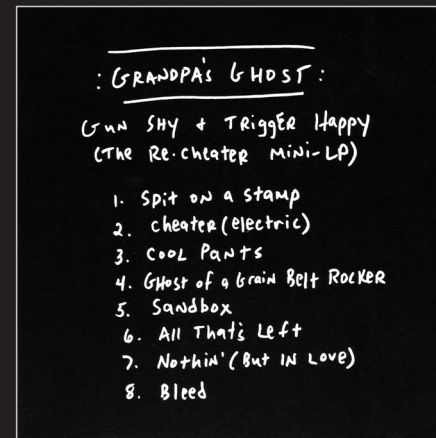 : GRANDPA'S GHOST :
GUN SHY & TRiggER Happy
(The Re-cheater MiNi-LP)
1. Spit oN a Stamp
2. cheater (electric)
3. COOL PaNTS
4. GHost of a Grain Belt RocKER
5. Sandbox
6. All That's Left
7. NothiN' (But IN Love)
8. Bleed